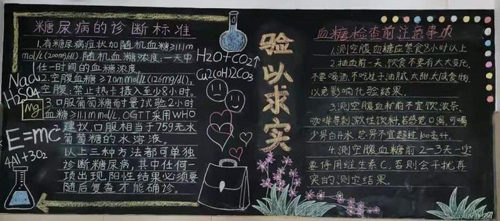 糖尿病的诊断标准
1.有糖尿病症状加随机血糖≥11.1m
mol/L(200mg/dl),随机血糖浓度:一天中
任一时间的血糖浓度.
2.空腹血糖≥7.0mmol/L(126mg/dl),
空腹:禁止热卡摄入至少8小时。
3.口服葡萄糖耐量试验2小时
血糖≥11.1mmol/L,OGTT采用WHO
建议,口服相当于75g无水
葡萄糖的水溶液
以上三种方法都可单独
诊断糖尿病,其中任何一
项出现阳性结果,必须要
随后复查才能确诊。
NaCl
H2SO4
Mg
E=mc²
4Al+3O2
H2O+CO2↑
Cu2(OH)2CO3
验以求实
血糖检查前注意事项
1.测空腹血糖应禁食8小时以上
2.抽血前一天,饮食不要有大大变化,
不要喝酒,不吃过于油腻、太甜、太咸食物,
以免影响化验结果.
3.测空腹血糖前不宜饮浓茶、
咖啡等刺激性饮料,若感觉口渴,可喝
少量白开水,
4.测空腹血糖前2-3天一定
要停用维生素C,否则会干扰真
实的测定结果.